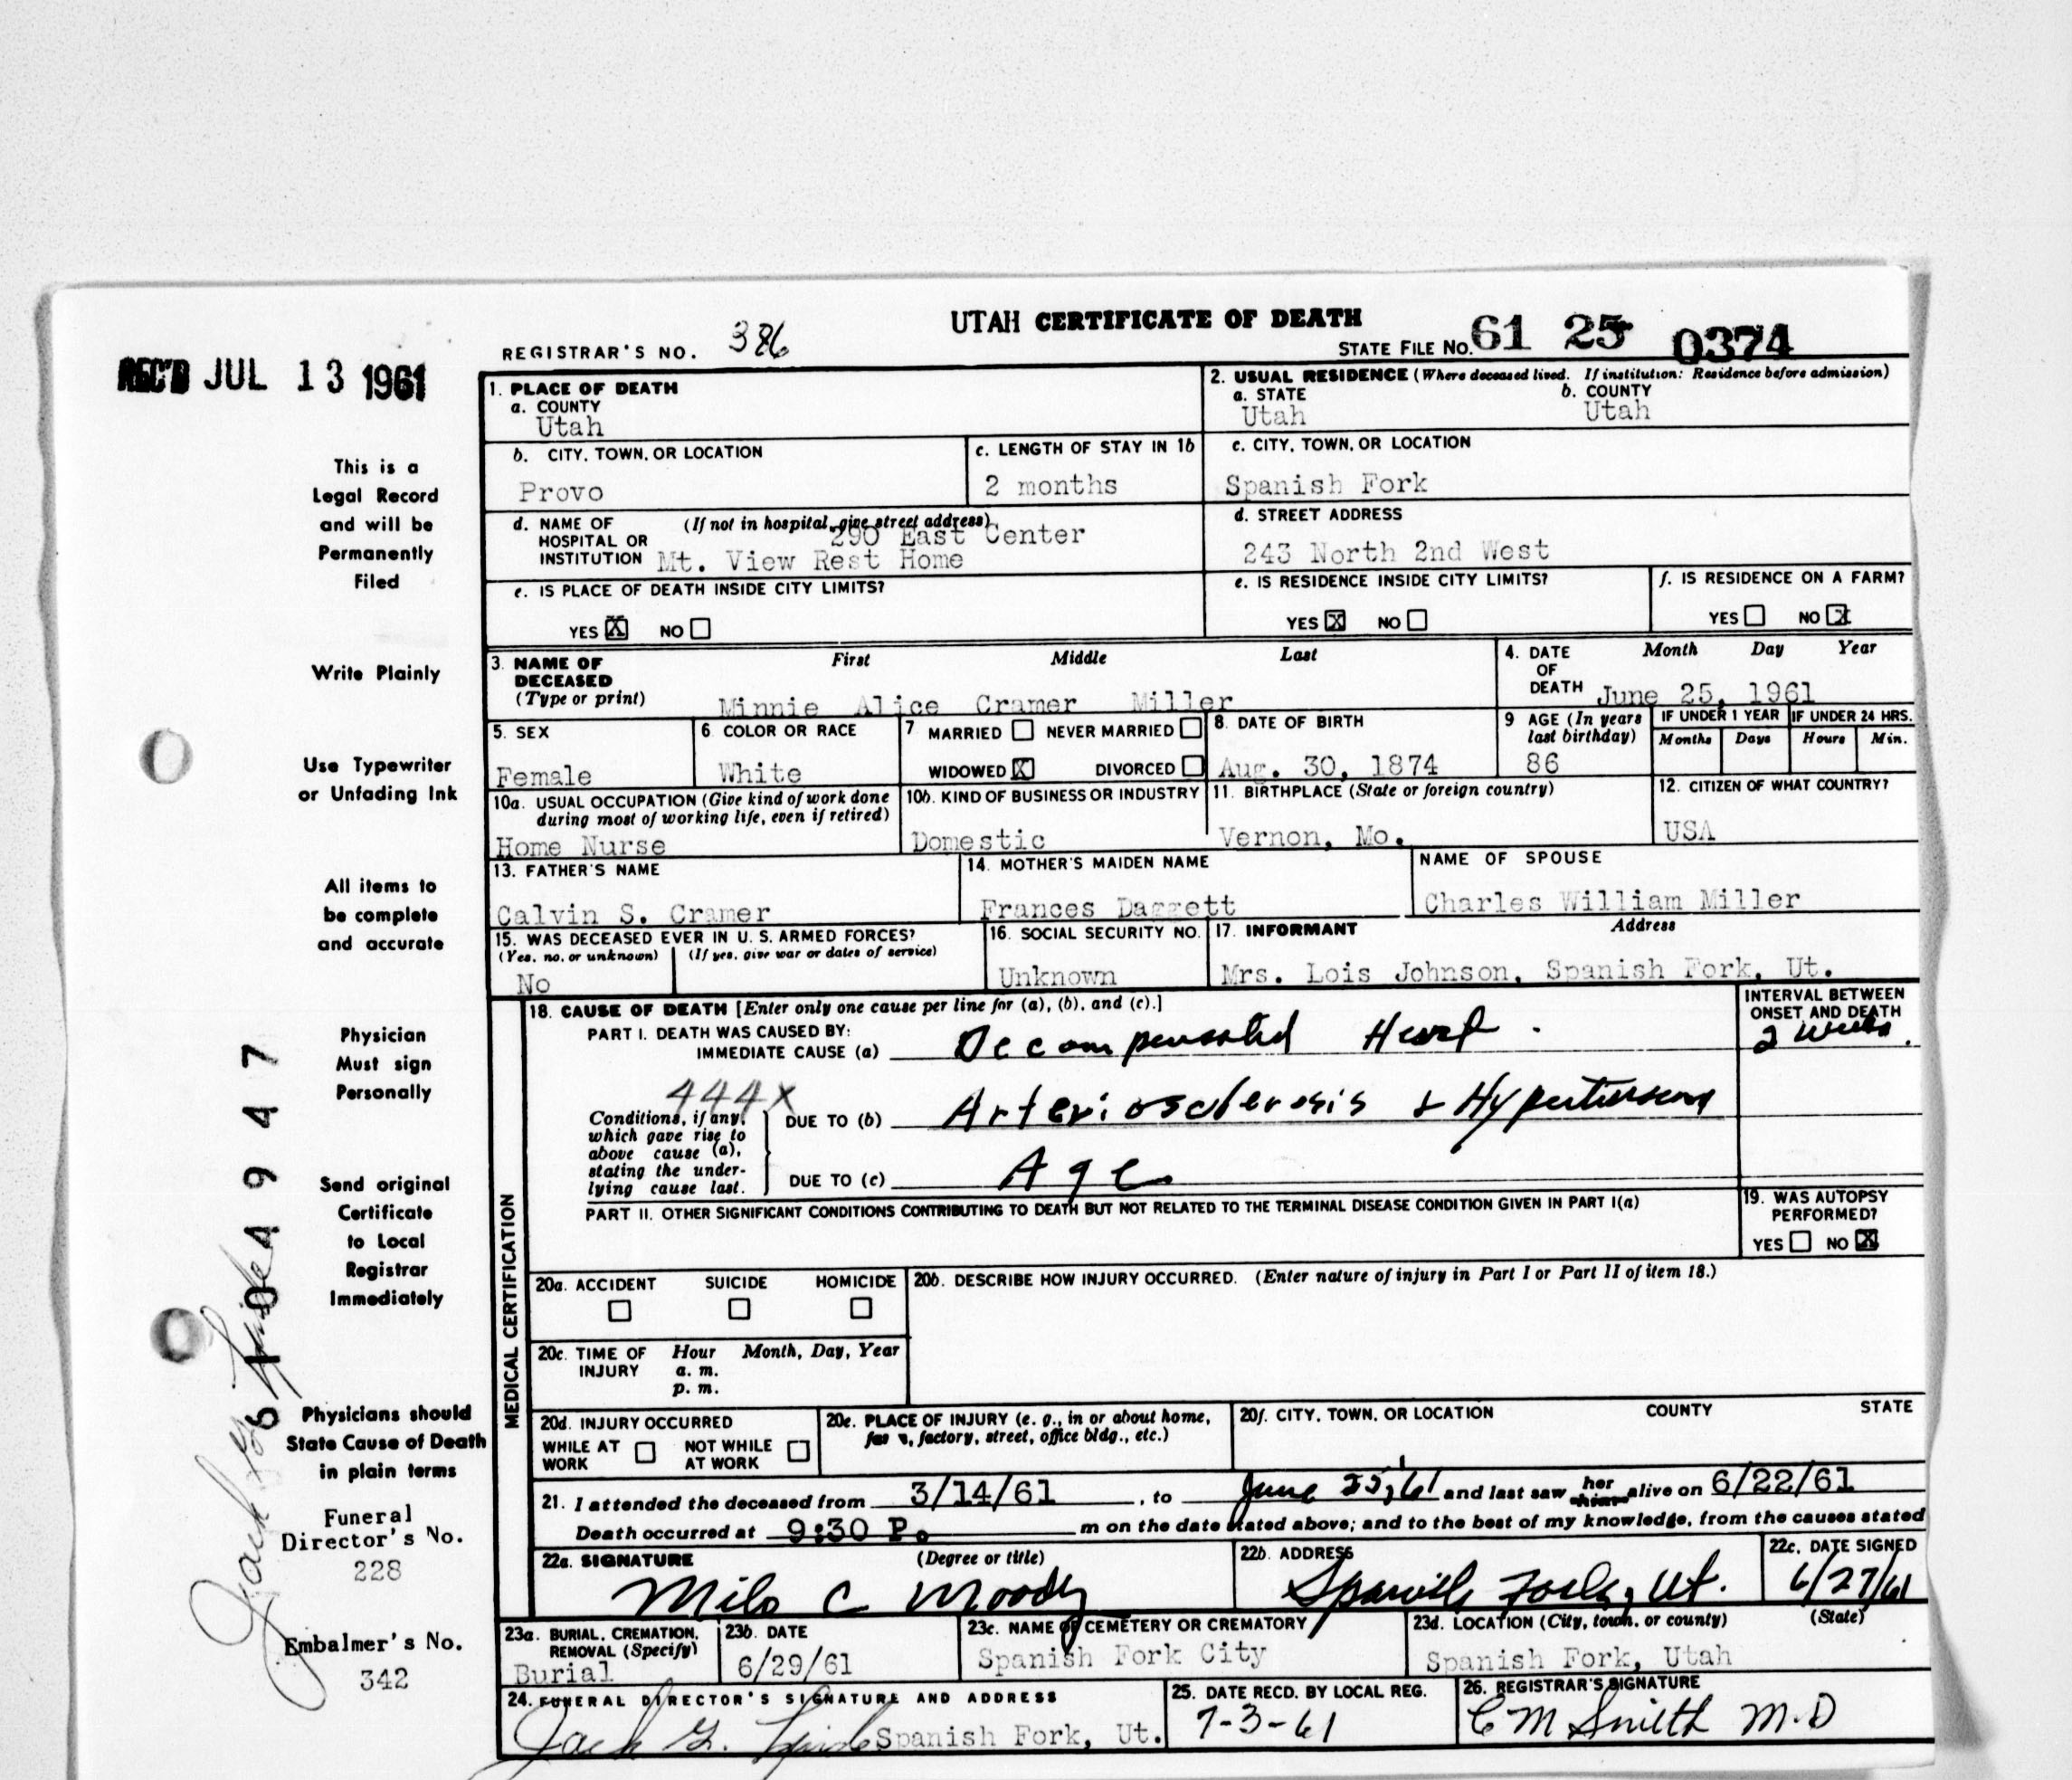 UTAH CERTIFICATE OF DEATH
REGISTRAR'S NO. 386
STATE FILE No. 61 25 0374
REC'D JUL 13 1961
This is a
Legal Record
and will be
Permanently
Filed
Write Plainly
Use Typewriter
or Unfading Ink
All items to
be complete
and accurate
Physician
Must sign
Personally
Send original
Certificate
to Local
Registrar
Immediately
Physicians should
State Cause of Death
in plain terms
Funeral
Director's No.
228
Embalmer's No.
342
1. PLACE OF DEATH
a. COUNTY
Utah
2. USUAL RESIDENCE (Where deceased lived. If institution: Residence before admission)
a. STATE b. COUNTY
Utah Utah
b. CITY, TOWN, OR LOCATION
Provo
c. LENGTH OF STAY IN 1b
2 months
c. CITY, TOWN, OR LOCATION
Spanish Fork
d. NAME OF (If not in hospital, give street address)
HOSPITAL OR 290 East Center
INSTITUTION Mt. View Rest Home
d. STREET ADDRESS
243 North 2nd West
e. IS PLACE OF DEATH INSIDE CITY LIMITS?
YES X NO
e. IS RESIDENCE INSIDE CITY LIMITS?
YES X NO
f. IS RESIDENCE ON A FARM?
YES NO X
3. NAME OF First Middle Last
DECEASED
(Type or print) Minnie Alice Cramer Miller
4. DATE Month Day Year
OF
DEATH June 25, 1961
5. SEX
Female
6. COLOR OR RACE
White
7 MARRIED NEVER MARRIED
WIDOWED X DIVORCED
8. DATE OF BIRTH
Aug. 30, 1874
9 AGE (In years
last birthday)
86
IF UNDER 1 YEAR IF UNDER 24 HRS.
Months Days Hours Min.
10a. USUAL OCCUPATION (Give kind of work done
during most of working life, even if retired)
Home Nurse
10b. KIND OF BUSINESS OR INDUSTRY
Domestic
11. BIRTHPLACE (State or foreign country)
Vernon, Mo.
12. CITIZEN OF WHAT COUNTRY?
USA
13. FATHER'S NAME
Calvin S. Cramer
14. MOTHER'S MAIDEN NAME
Frances Daggett
NAME OF SPOUSE
Charles William Miller
15. WAS DECEASED EVER IN U. S. ARMED FORCES?
(Yes, no, or unknown) (If yes, give war or dates of service)
No
16. SOCIAL SECURITY NO.
Unknown
17. INFORMANT Address
Mrs. Lois Johnson, Spanish Fork, Ut.
MEDICAL CERTIFICATION
18. CAUSE OF DEATH [Enter only one cause per line for (a), (b), and (c).]
PART I. DEATH WAS CAUSED BY:
IMMEDIATE CAUSE (a) Decompensated Heart.
INTERVAL BETWEEN
ONSET AND DEATH
2 weeks.
444X
Conditions, if any,
which gave rise to
above cause (a),
stating the under-
lying cause last.
DUE TO (b) Arteriosclerosis & Hypertension
DUE TO (c) Age
PART II. OTHER SIGNIFICANT CONDITIONS CONTRIBUTING TO DEATH BUT NOT RELATED TO THE TERMINAL DISEASE CONDITION GIVEN IN PART I(a)
19. WAS AUTOPSY
PERFORMED?
YES NO X
20a. ACCIDENT SUICIDE HOMICIDE
20b. DESCRIBE HOW INJURY OCCURRED. (Enter nature of injury in Part I or Part II of item 18.)
20c. TIME OF Hour Month, Day, Year
INJURY a. m.
p. m.
20d. INJURY OCCURRED
WHILE AT NOT WHILE
WORK AT WORK
20e. PLACE OF INJURY (e. g., in or about home,
factory, street, office bldg., etc.)
20f. CITY, TOWN, OR LOCATION COUNTY STATE
21. I attended the deceased from 3/14/61, to June 25, 61 and last saw her him alive on 6/22/61
Death occurred at 9:30 P. m on the date stated above; and to the best of my knowledge, from the causes stated
22a. SIGNATURE (Degree or title)
Milo C Moody
22b. ADDRESS
Spanish Fork, Ut.
22c. DATE SIGNED
6/27/61
23a. BURIAL, CREMATION,
REMOVAL (Specify)
Burial
23b. DATE
6/29/61
23c. NAME OF CEMETERY OR CREMATORY
Spanish Fork City
23d. LOCATION (City, town, or county) (State)
Spanish Fork, Utah
24. FUNERAL DIRECTOR'S SIGNATURE AND ADDRESS
Jack G. Spanish Fork, Ut.
25. DATE RECD. BY LOCAL REG.
7-3-61
26. REGISTRAR'S SIGNATURE
C M Smith M.D